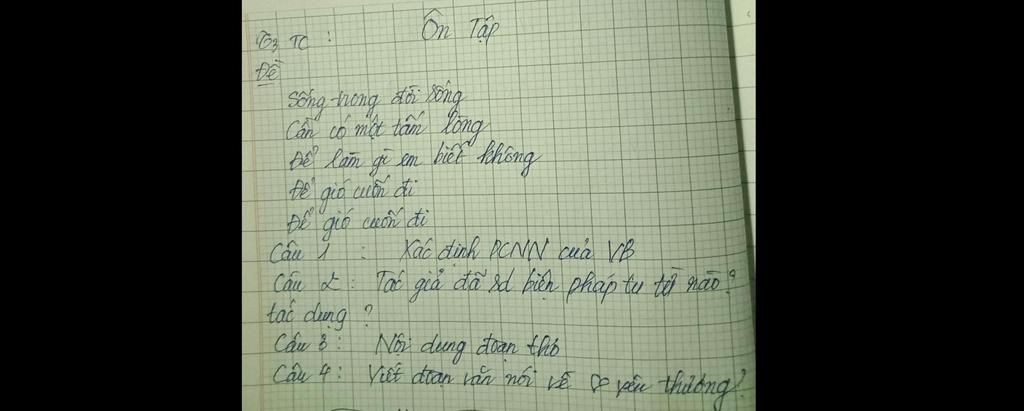 Ôn Tập
T93 TC :
Đề
Sống trong đời sống
Cần có một tấm lòng
Để làm gì em biết không
Để gió cuốn đi
Để gió cuốn đi
Câu 1 : Xác định PCNN của VB
Câu 2 : Tác giả đã sd biện pháp tu từ nào ?
tác dụng ?
Câu 3 : Nội dung đoạn thơ
Câu 4 : Viết đoạn văn nói về yêu thương ?